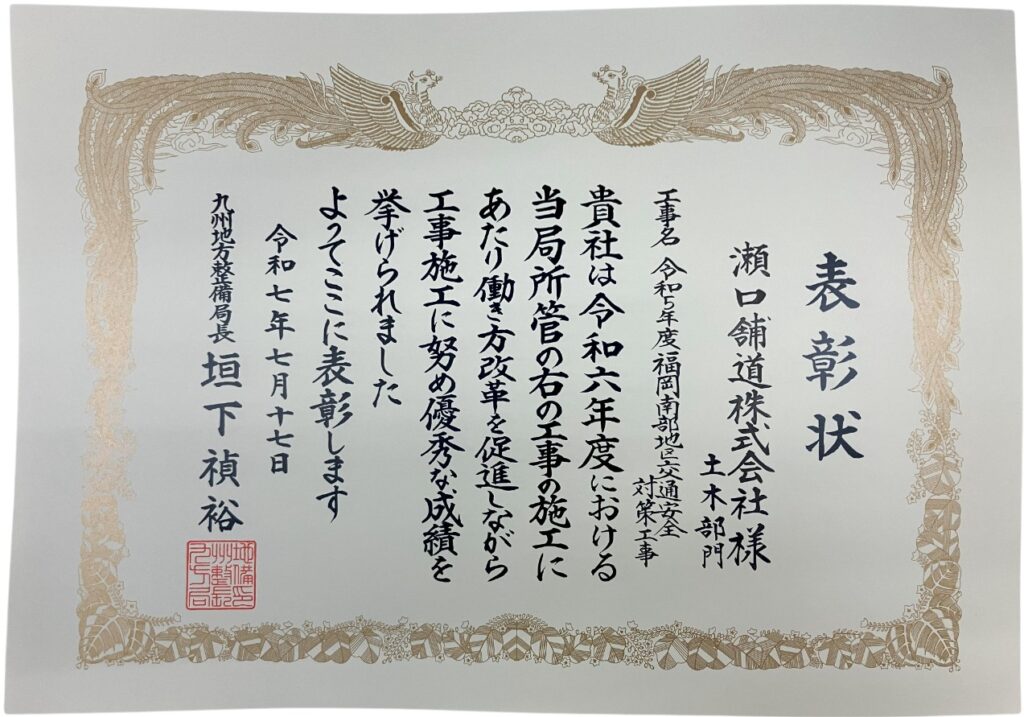 表彰状
瀬口舗道株式会社様
土木部門
工事名 令和5年度福岡南部地区交通安全
対策工事
貴社は令和六年度における
当局所管の右の工事の施工に
あたり働き方改革を促進しながら
工事施工に努め優秀な成績を
挙げられました
よってここに表彰します
令和七年七月十七日
九州地方整備局長 垣下禎裕